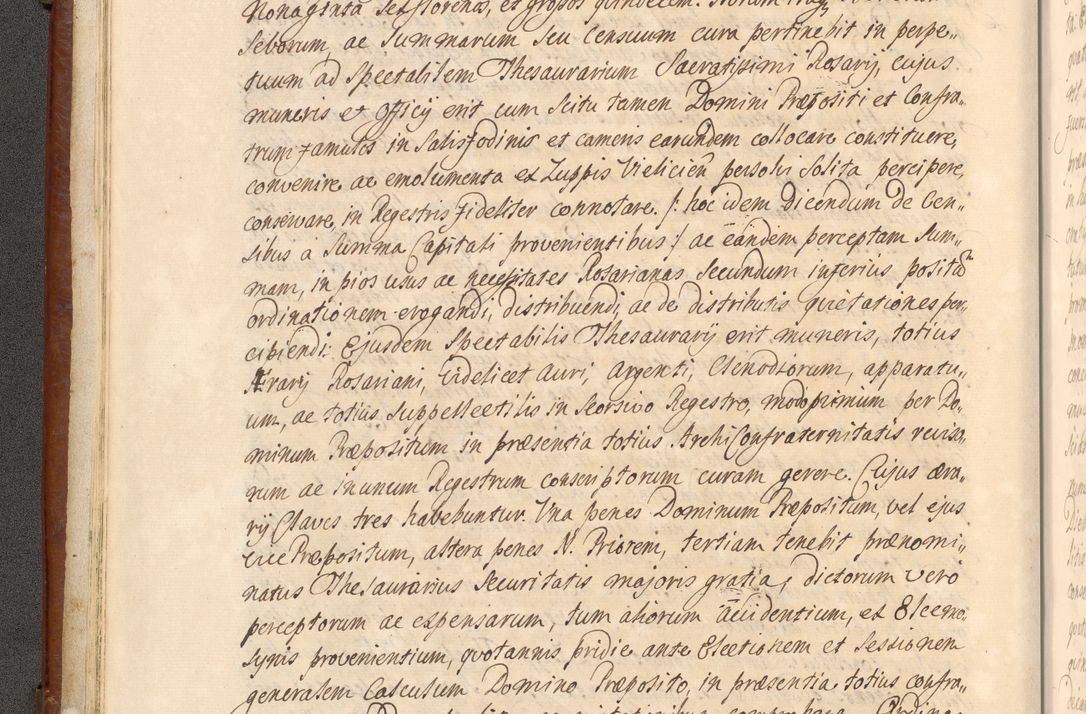 Nonaginta sex florenos, et grossos quindecim.
Seborum, ac Summarum seu Censuum cura pertinebit in perpe„
tuum ad Spectabilem Thesaurarium Sacratissimi Rosarij, cujus
muneris et officij erit cum scitu tamen Domini Præpositi et Confra„
trum famulos in Salisfodinis et cameris earundem collocare constituere,
convenire ac emolumenta ex Zuppis Vieliciēn persolvi solita percipere,
conservare, in Regestris fideliter connotare. /: hoc idem dicendum de Cen„
sibus à Summa Capitali provenientibus :/ ac eandem perceptam Sum„
mam, in pios usus ac necessitates Rosarianas secundum inferius positam
ordinationem erogandi, distribuendi, ac de distributis quietationes per„
cipiendi. Ejusdem Spectabilis Thesaurarij erit muneris, totius
Ærarij Rosariani, Videlicet Auri, Argenti, Clenodiorum, apparatu„
um, ac totius suppellectilis in seorsivo Regestro, modo primum per Do„
minum Præpositum in præsentia totius ArchiConfraternitatis reviso„
rum ac in unum Regestrum conscriptorum curam gerere. Cujus æra„
rij Claves tres habebuntur. Una penes Dominum Præpositum, vel ejus
vice Præpositum, altera penes N. Priorem, tertiam tenebit prænomi„
natus Thesaurarius securitatis majoris gratia; dictorum vero
perceptorum ac expensarum, tum aliorum accidentium, ex Eleemo„
synis provenientium, quotannis pridie ante Electionem et Sessionem
generalem Calculum Domino Præposito, in præsentia totius confra„